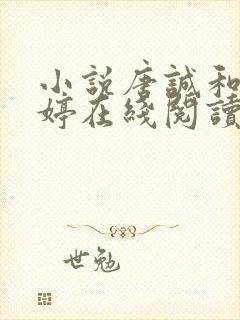 小説唐誠和
婷在綫閱讀
世勉